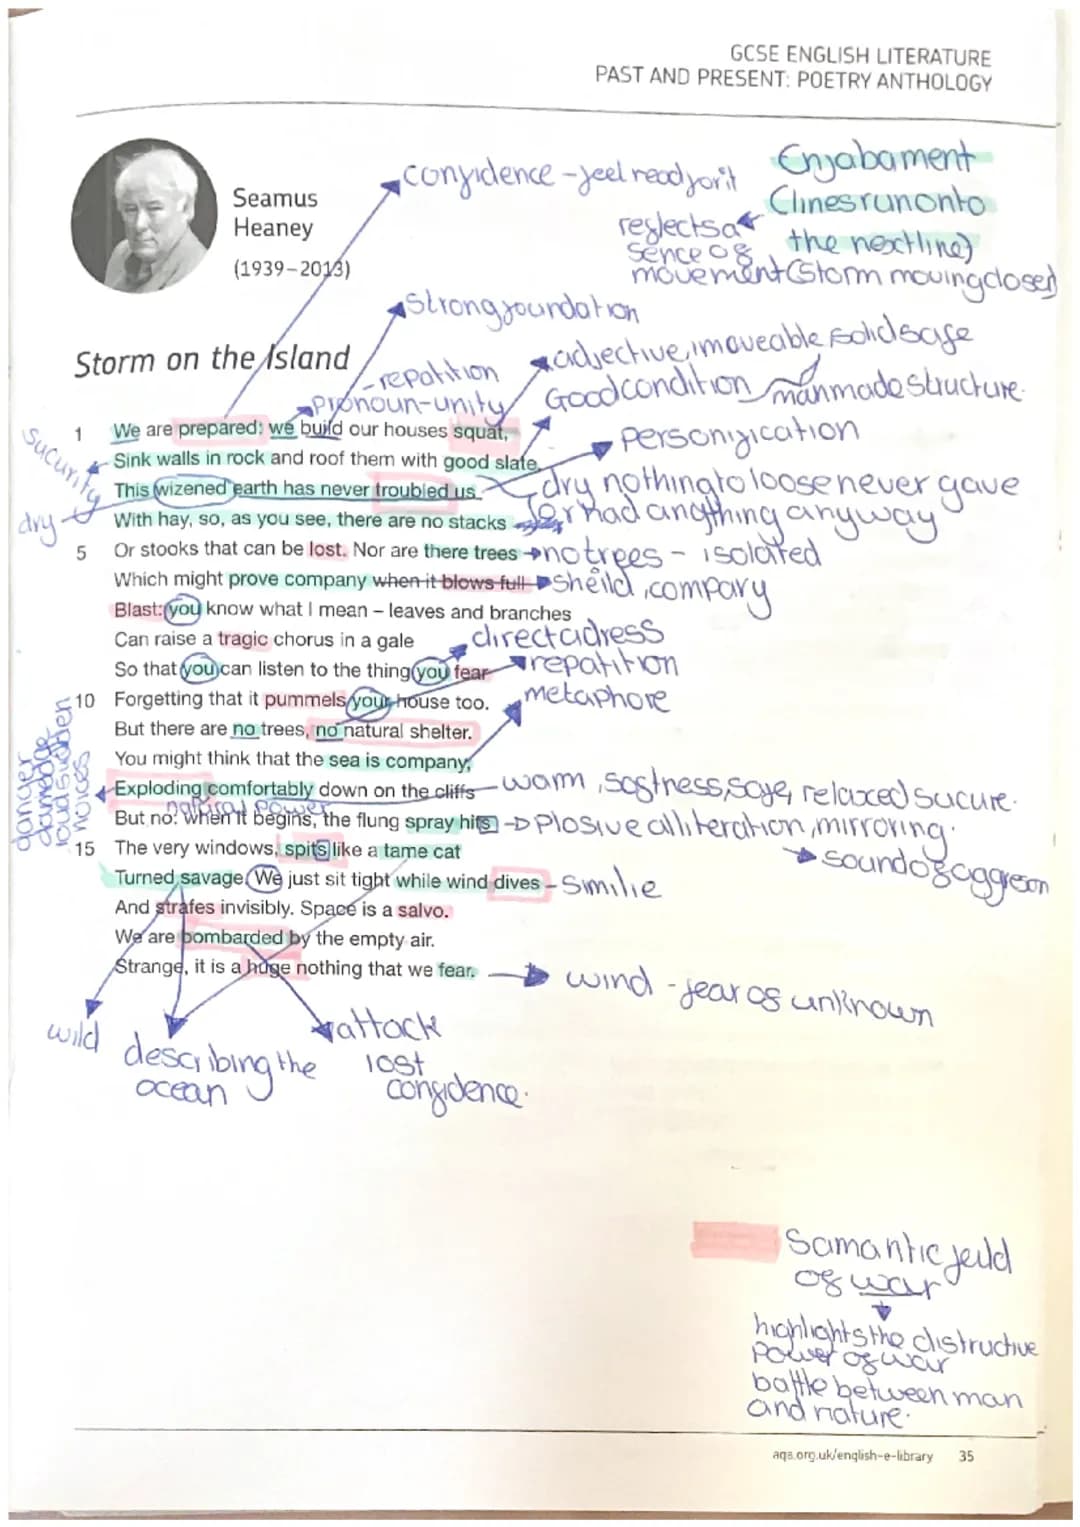 GCSE ENGLISH LITERATURE
PAST AND PRESENT: POETRY ANTHOLOGY
Seamus
Heaney
(1939–2013)
confidence - feel ready for it
Enjabament
(lines run onto
the next line)
reflects a
sence of
movement (Storm moving closer)
Strong foundation
Storm on the Island
- repatition
Pronoun-unity
adjective, imoveable, solid safe
Good condition
manmade structure.
1 We are prepared: we build our houses squat,
Sink walls in rock and roof them with good slate.
This wizened earth has never troubled us
With hay, so, as you see, there are no stacks
5 Or stooks that can be lost. Nor are there trees
Which might prove company when it blows full
Blast: you know what I mean – leaves and branches
Can raise a tragic chorus in a gale
So that you can listen to the thing you fear
10 Forgetting that it pummels your house too.
But there are no trees, no natural shelter.
You might think that the sea is company,
Exploding comfortably down on the cliffs
But no: when it begins, the flung spray hits
15 The very windows, spits like a tame cat
Turned savage. We just sit tight while wind dives
And strafes invisibly. Space is a salvo.
We are bombarded by the empty air.
Strange, it is a huge nothing that we fear.
Sucurity
dry
Personification
dry nothing to loose never gave
or had anything anyway
no trees - isolated
sheild, company
direct adress
repatition
metaphore
danger
damedge
loud sudden
noices
warm, softness, safe, relaxed sucure.
natural power
Plosive alliteration, mirroring.
sound of aggreson
Similie
wind - fear of unknown
wild
describing the
ocean
attack
lost
confidence.
Samantic feild
of war
highlights the distructive
power of war
battle between man
and nature.
aqa.org.uk/english-e-library 35